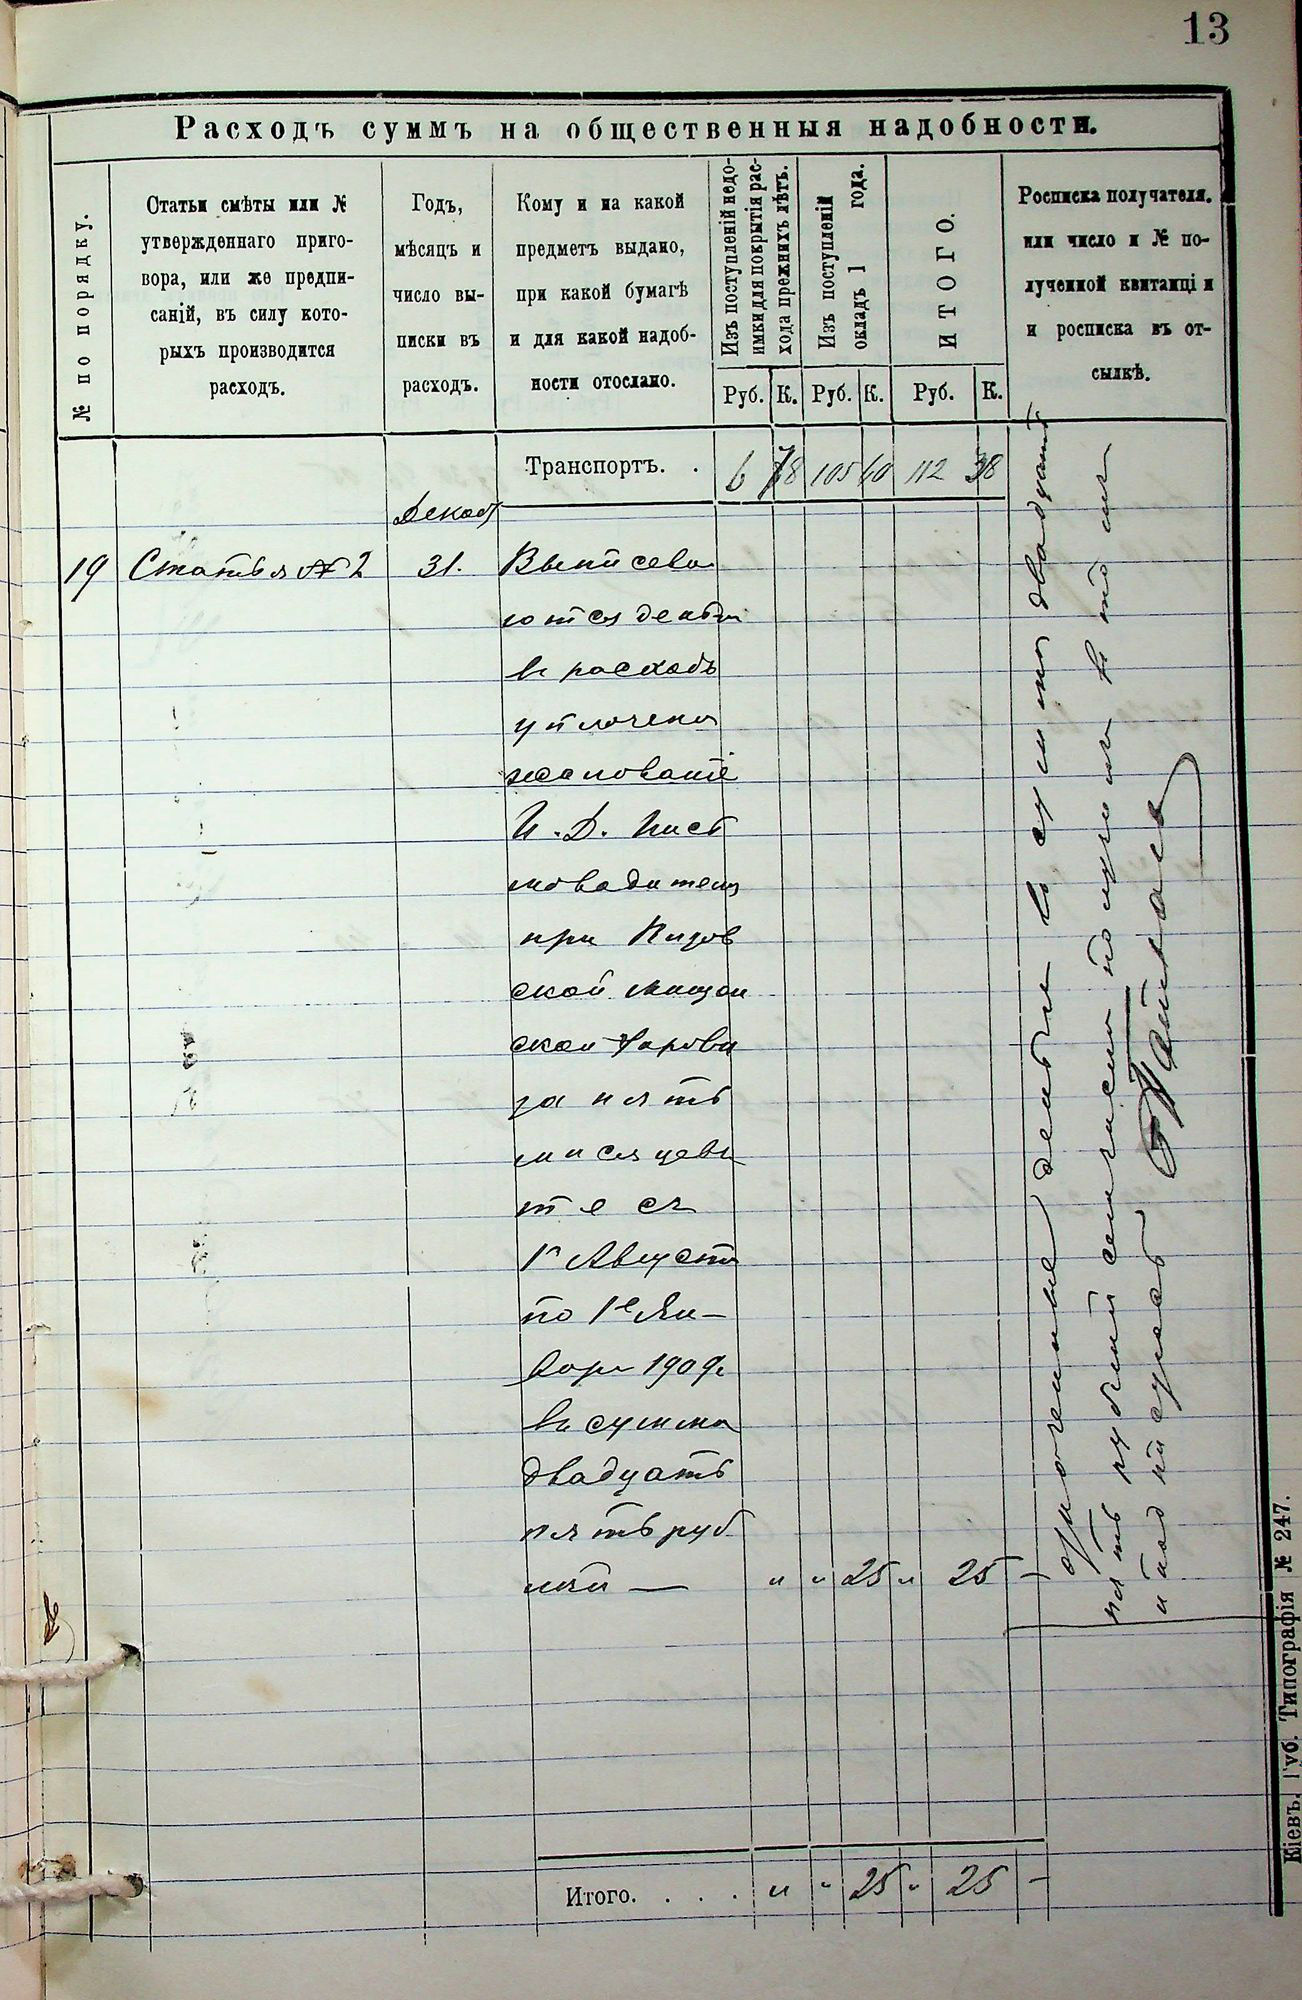 13
Расходъ суммъ на общественныя надобности.
№ по порядку.
Статьи смѣты или №
утвержденнаго приго-
вора, или же предпи-
саній, въ силу кото-
рыхъ производится
расходъ.
Годъ,
мѣсяцъ и
число вы-
писки въ
расходъ.
Кому и на какой
предметъ выдано,
при какой бумагѣ
и для какой надоб-
ности отослано.
Изъ поступленій недо-
имки для покрытія рас-
хода прежнихъ лѣтъ.
Руб. К.
Изъ поступленій
окладъ 1 года.
Руб. К.
ИТОГО.
Руб. К.
Росписка получателя.
или число и № по-
лученной квитанціи
и росписка въ от-
сылкѣ.
Транспортъ. . 6 78 105 60 112 38
Декаб
19 Статья № 2 31. Выписева
ются деньги
въ расходъ
уплочено
жалование
И. Д. Пист
моводителя
при
ской мищан
ской
за пять
мисяцевъ
т е съ
1го Августа
по 1е Ян-
варя 1909г
въ сумма
двадцать
пять руб
лей — " " 25 " 25 —
означенные деньги въ сумма двадцать
пять рублий сполна получилъ в том
и подписуюсь
Итого. . . . " " 25 " 25 —
Кіевъ. Губ. Типографія № 247.